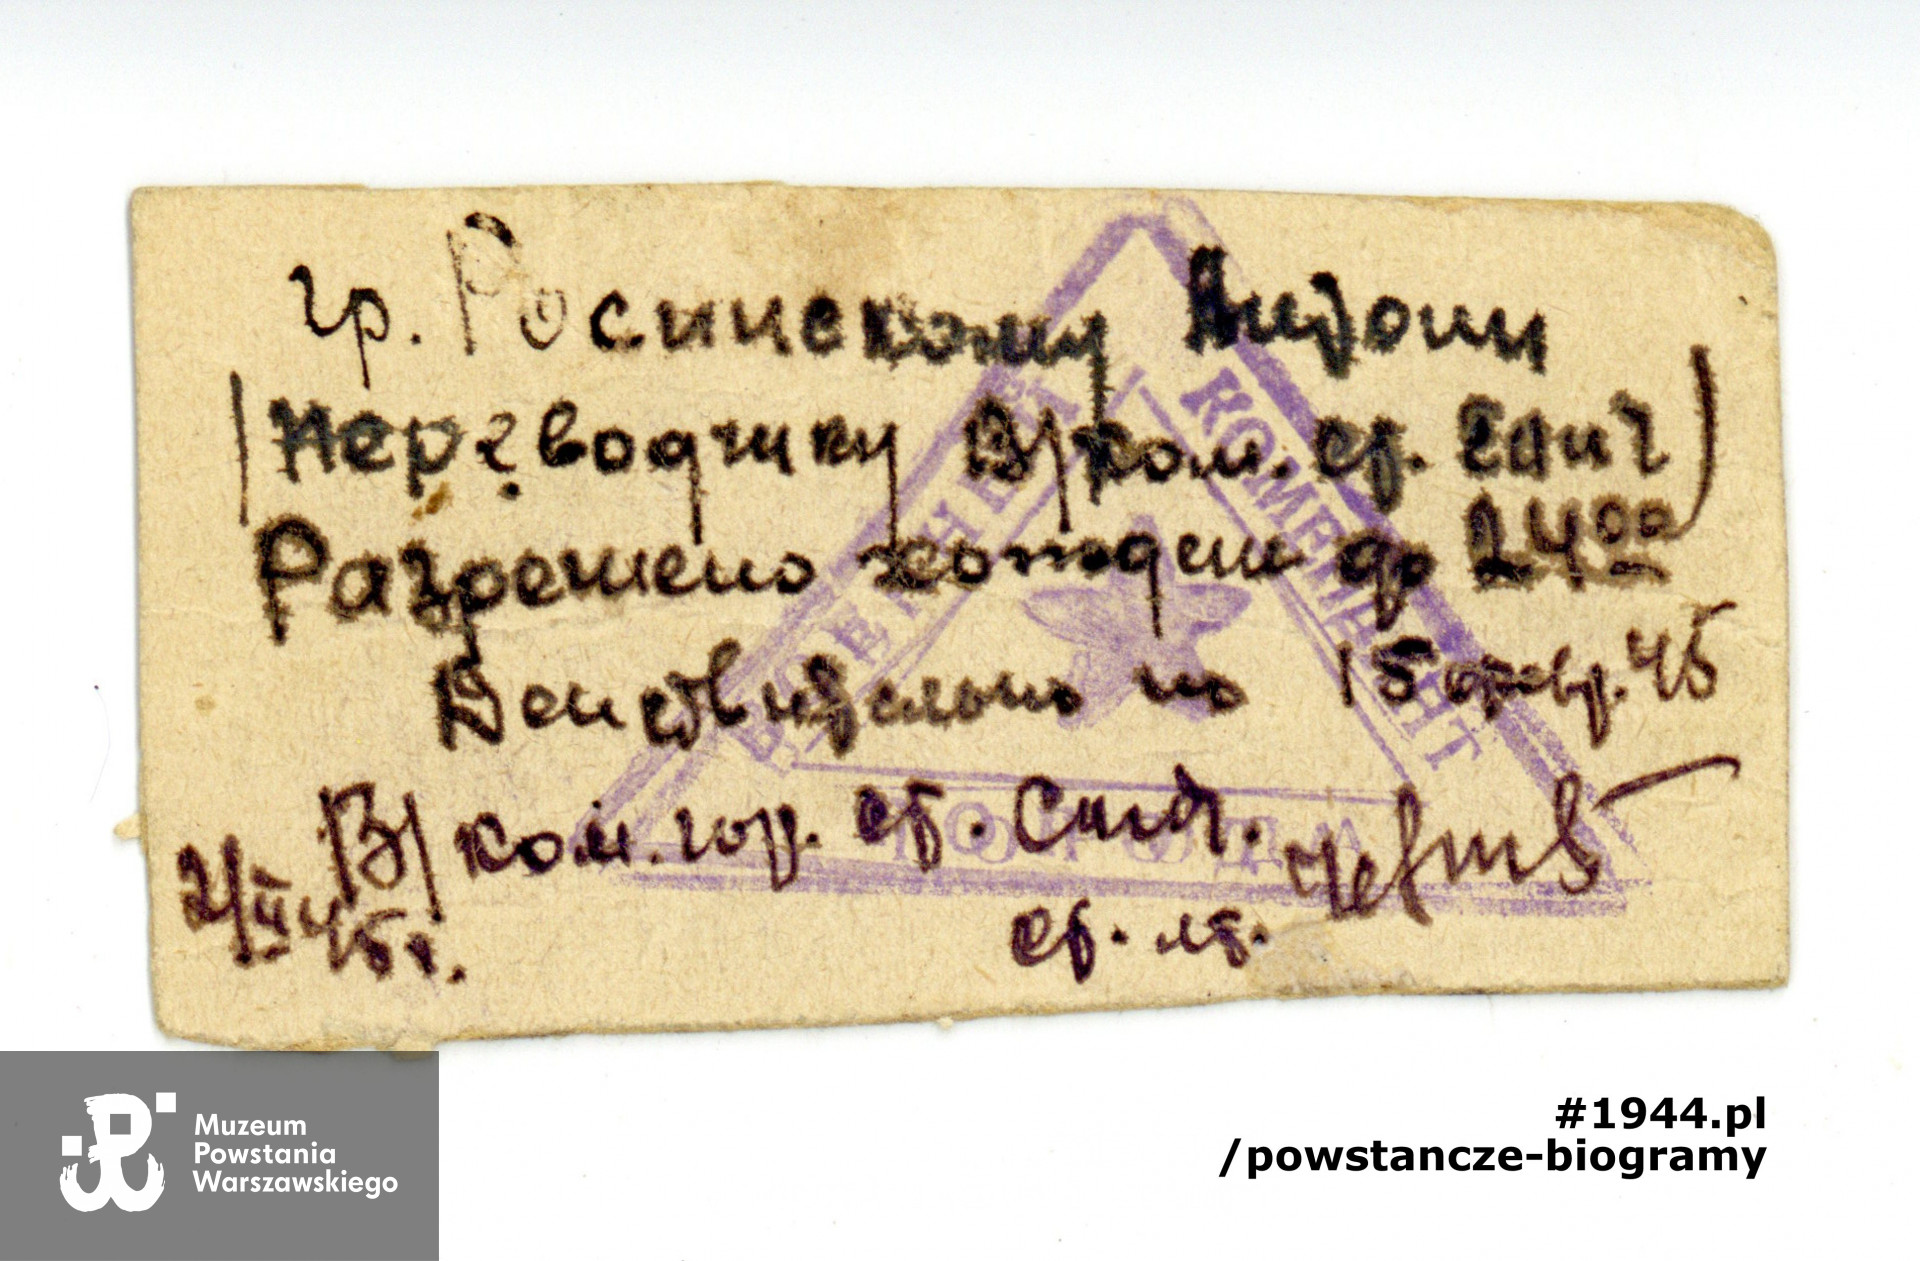 гр. Росинскому Антони
(переводчику В/ком. ст.
Разрешено хождение до 24 00
Действительно по 15 февр. 45
В/ ком. гор. ст.
2/II 45 г.
ст. лт.
ВОЕННЫЙ КОМЕНДАНТ ГОРОДА
Muzeum
Powstania
Warszawskiego
#1944.pl
/powstancze-biogramy